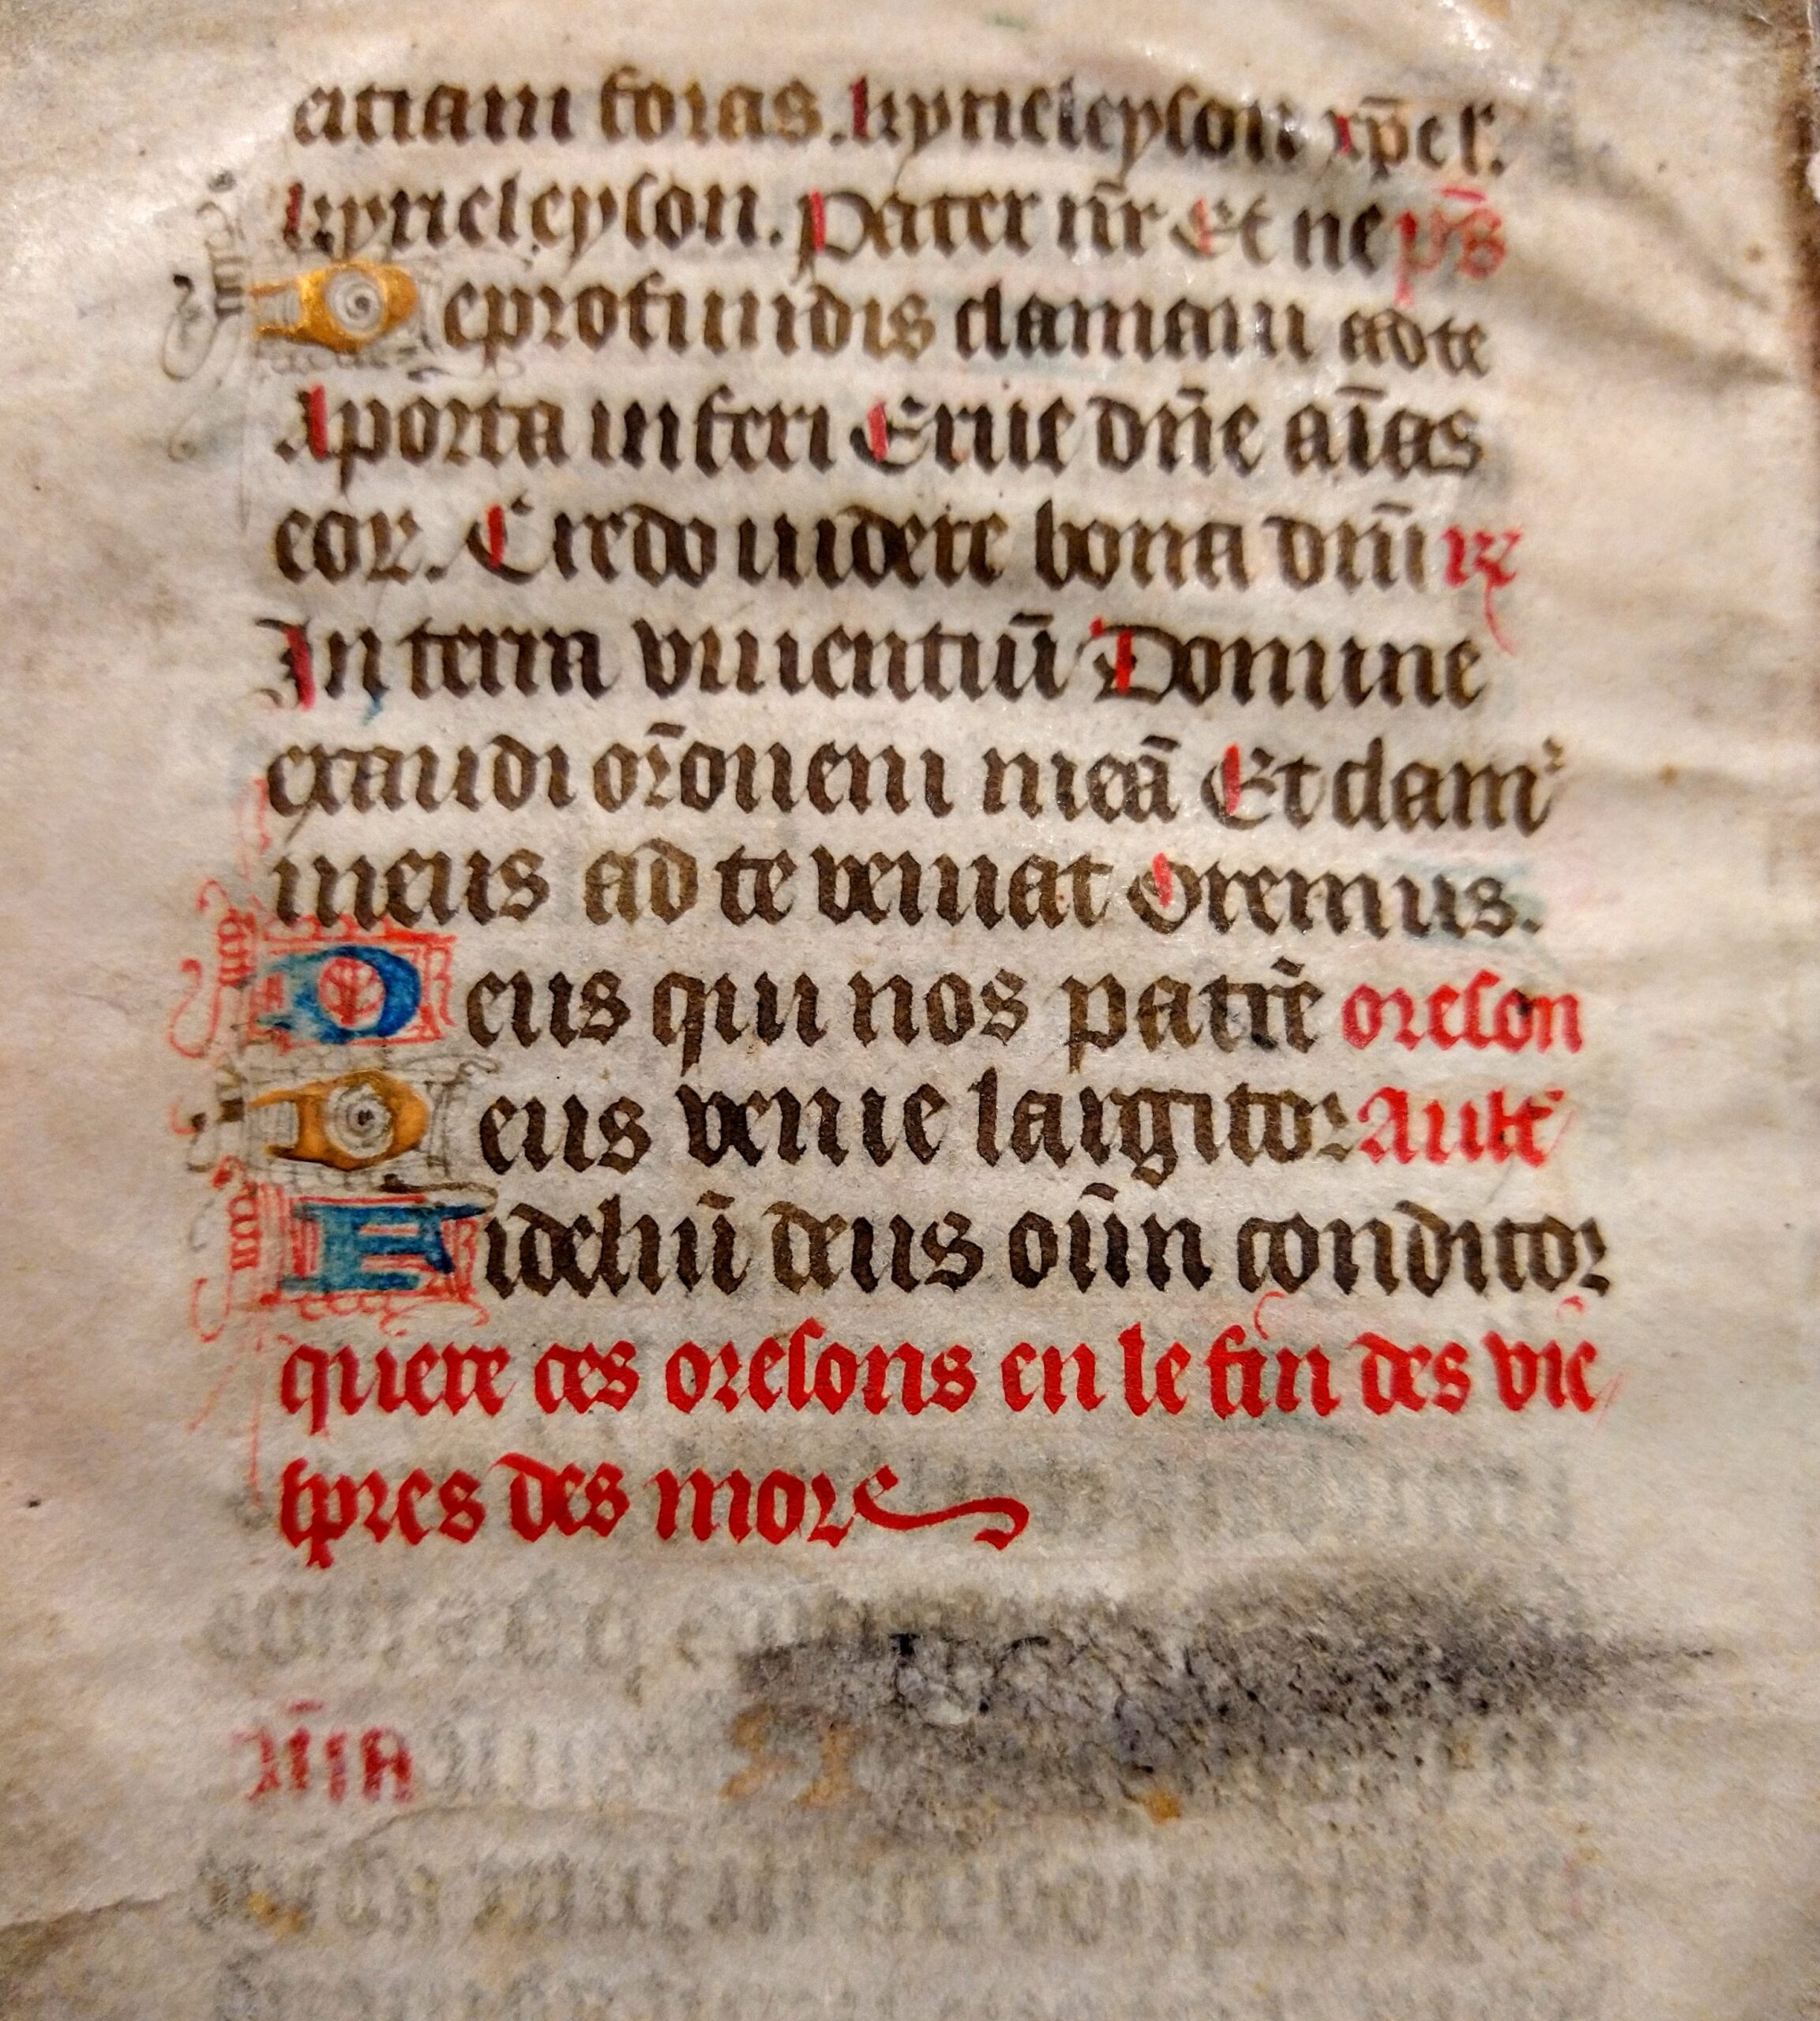 eitiam foras. kyrieleyson xp̄e l'.
kyrieleyson. Pater nr̄ Et ne ps̄
De profundis clamaui ad te
A porta inferi Erue dn̄e aīas
eoꝝ. Credo uidere bona dn̄i ꝶ
In terra viuentiū Domine
exaudi or̄onem meā Et clam᾽
meus ad te veniat Oremus.
Deus qui nos patrē orelon
Deus venie largitor Ault̄
Fideliū deus oīm conditor
quere ces orelons en le fin des vie
spres des more